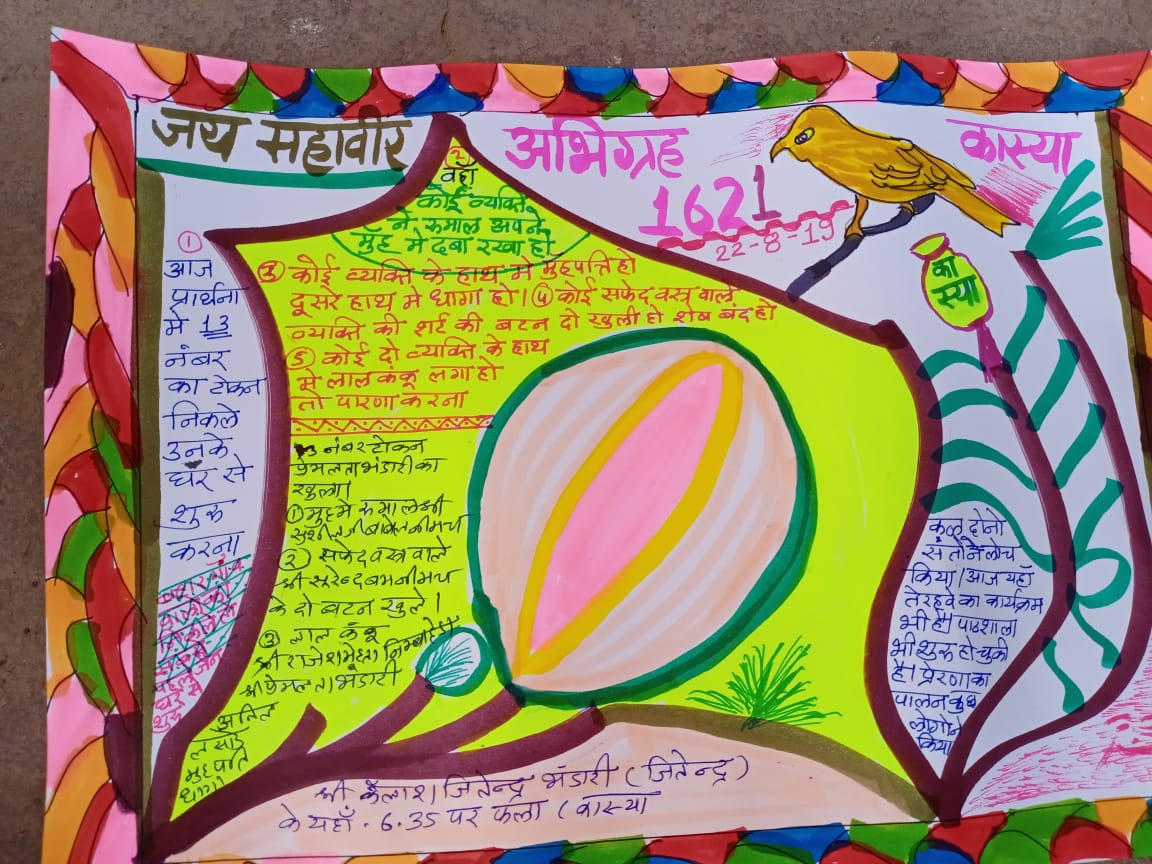 जय महावीर
अभिग्रह
कास्या
1621
22-8-19
①
आज
प्रार्थना
मे 13
नंबर
का टोकन
निकले
उनके
घर से
शुरू
करना
②
वहाँ
कोई व्यक्ति
ने रुमाल अपने
मुँह मे दबा रखा हो
③ कोई व्यक्ति के हाथ मे मुहपत्ति हो
दूसरे हाथ मे धागा हो। ④ कोई सफेद वस्त्र वाले
व्यक्ति की शर्ट की बटन दो खुली हो शेष बंद हो
⑤ कोई दो व्यक्ति के हाथ
मे लाल कंकू लगा हो
तो पारणा करना
13 नंबर टोकन
प्रेमलता भंडारी का
खुला।
① मुहमे रुमाल श्री
② सफेद वस्त्र वाले
श्री सुरेन्द्र बम नीमच
के दो बटन खुले।
③ लाल कंकू
श्री राजेश मेहता निम्बाहेडा
श्री प्रेमलता भंडारी
मुहपत्ति
धागा
का
स्या
कल दोनो
संतोने लोच
किया। आज यहाँ
तेरहवे का कार्यक्रम
भी है। पाठशाला
भी शुरू हो चुकी
है। प्रेरणा का
पालन कुछ
लोगोने
किया
श्री कैलाश। जितेन्द्र भंडारी (जितेन्द्र)
के यहाँ . 6.35 पर फला (कास्या